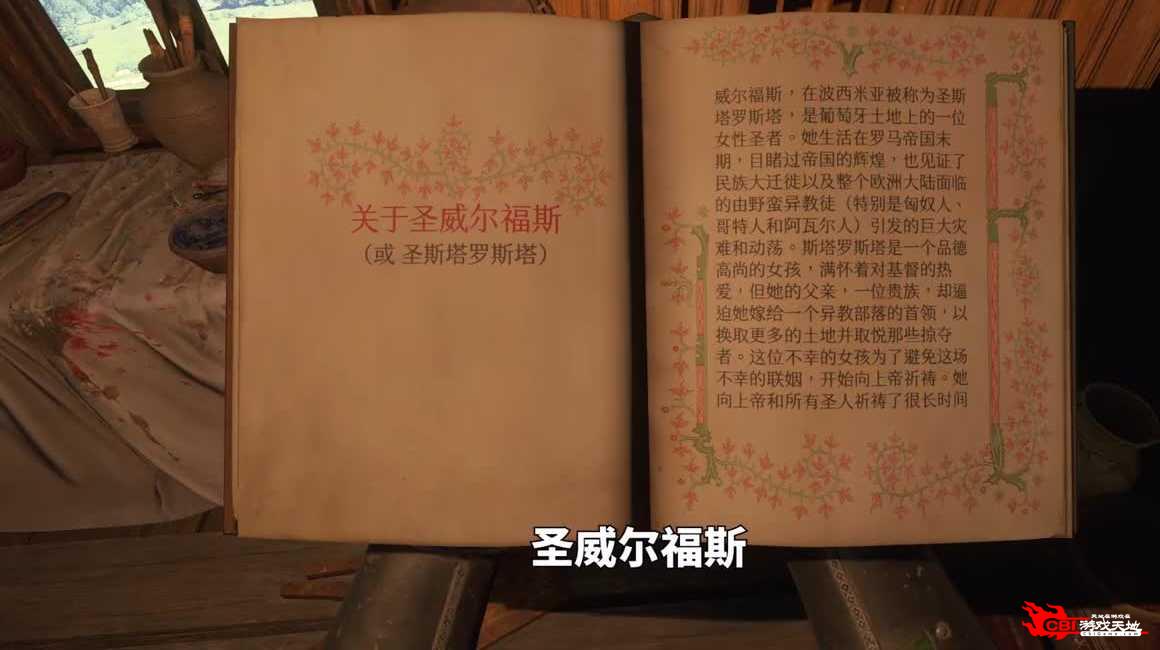 关于圣威尔福斯
（或 圣斯塔罗斯塔）
威尔福斯，在波西米亚被称为圣斯
塔罗斯塔，是葡萄牙土地上的一位
女性圣者。她生活在罗马帝国末
期，目睹过帝国的辉煌，也见证了
民族大迁徙以及整个欧洲大陆面临
的由野蛮异教徒（特别是匈奴人、
哥特人和阿瓦尔人）引发的巨大灾
难和动荡。斯塔罗斯塔是一个品德
高尚的女孩，满怀着对基督的热
爱，但她的父亲，一位贵族，却逼
迫她嫁给一个异教部落的首领，以
换取更多的土地并取悦那些掠夺
者。这位不幸的女孩为了避免这场
不幸的联姻，开始向上帝祈祷。她
向上帝和所有圣人祈祷了很长时间
圣威尔福斯
CBI游戏天地
CBIGame.com